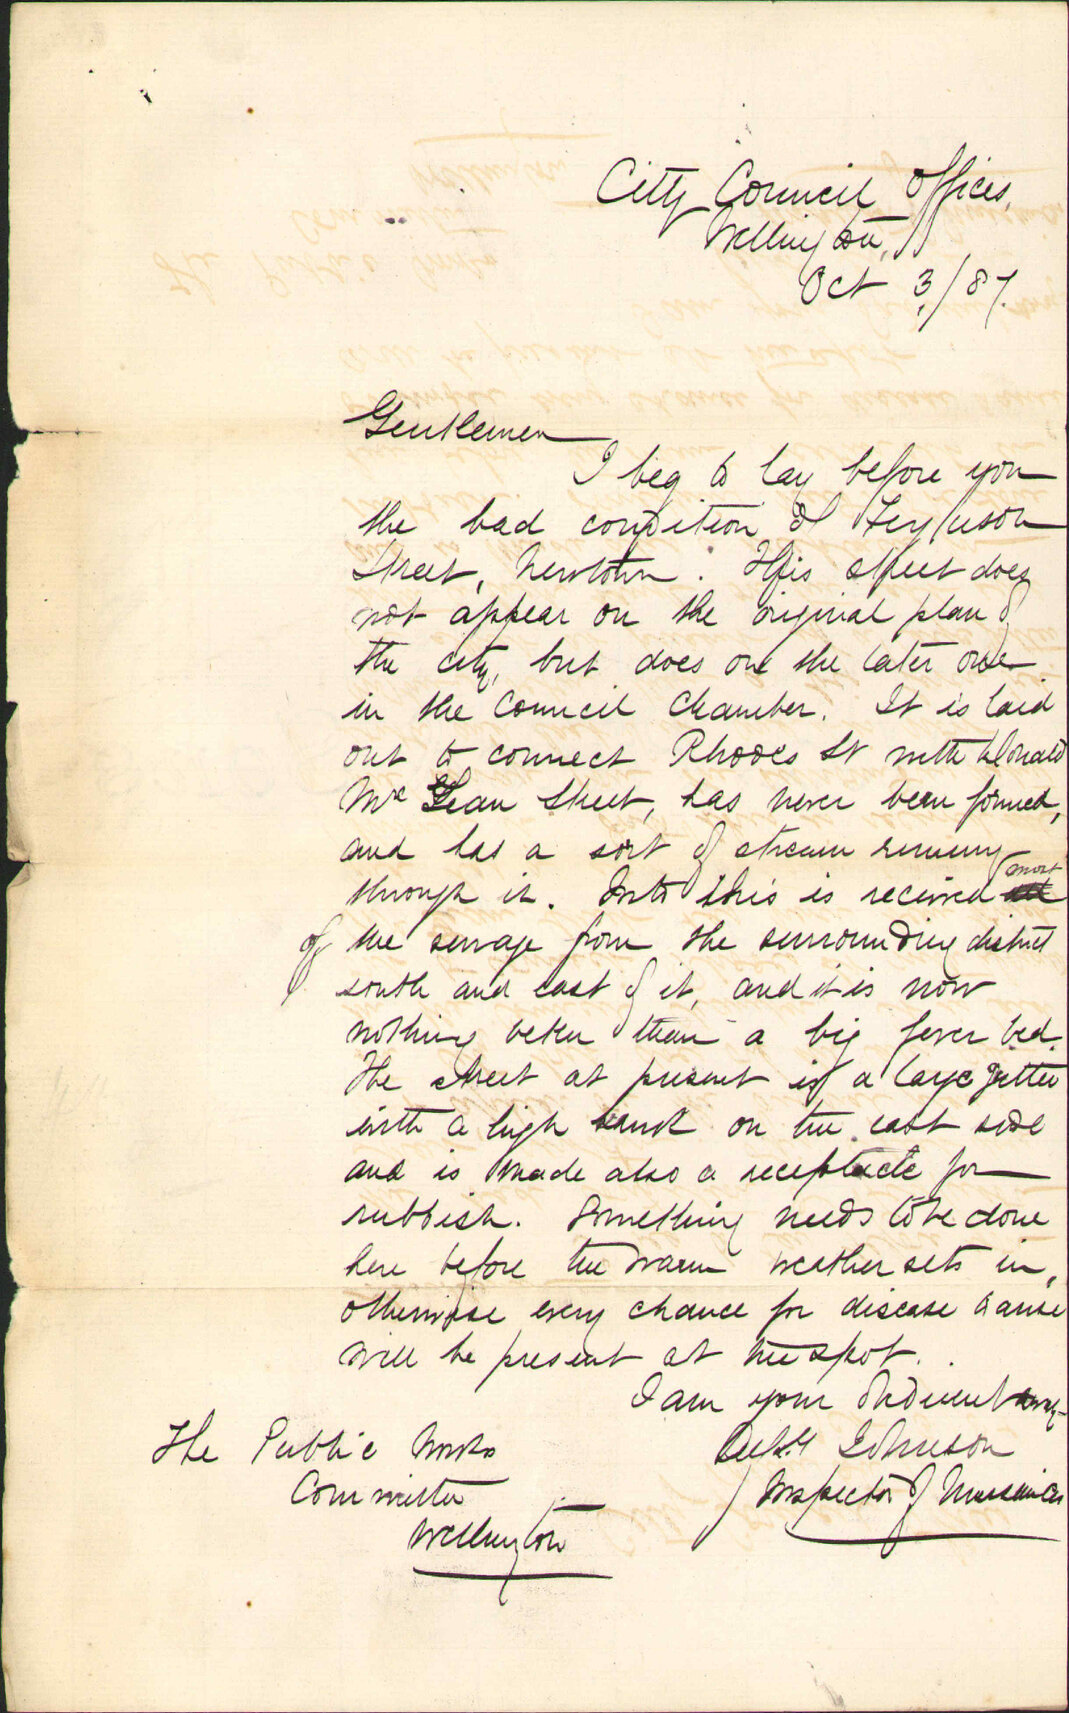 City Council Offices,
Wellington,
Oct 3/87.
Gentlemen
I beg to lay before you
the bad condition of Ferguson
Street, Newtown. This street does
not appear on the original plan of
the city, but does on the later one
in the Council Chamber. It is laid
out to connect Rhodes St with Donald
McLean Street, has never been formed,
and has a sort of stream running
through it. Into this is received most
of the sewage from the surrounding district
south and east of it, and it is now
nothing better than a big fever bed.
The street at present is a large gutter
with a high bank on the east side
and is made also a receptacle for
rubbish. Something needs to be done
here before the warm weather sets in,
otherwise every chance for disease to arise
will be present at the spot.
I am your obedient
Johnson
Inspector of Nuisances
The Public Works
Committee
Wellington